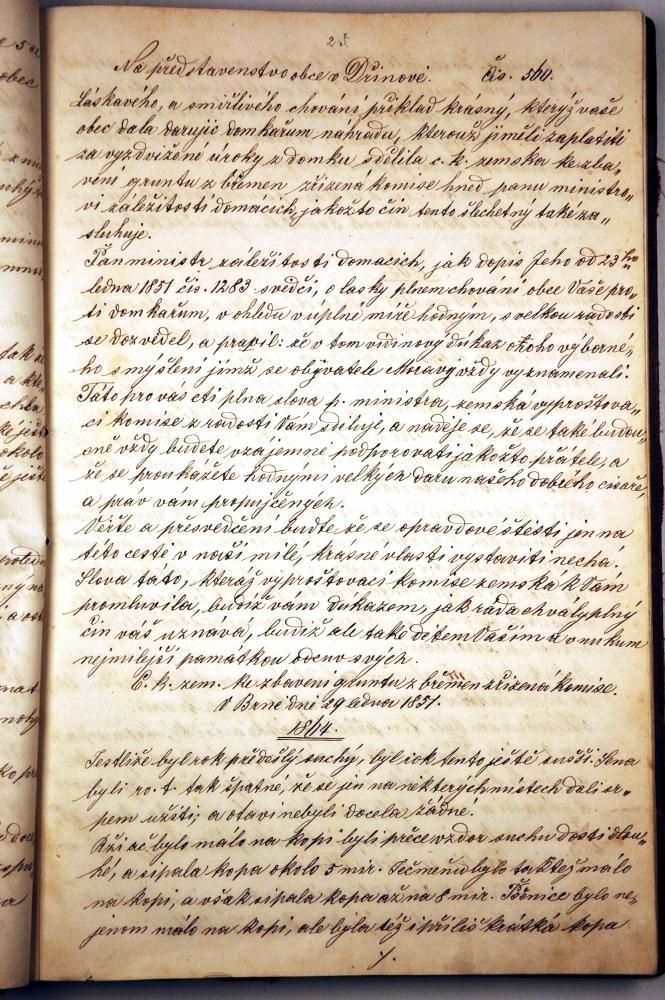 25.
Na představenstvo obce v Dřinové. čis. 560.
Láskavého, a smířlivého chování příklad krásný, kterýž vaše
obec dala darujíc domkařum náhradu, kterouž jí měli zaplatiti
za vyzdvižené úroky z domku sdělila c. k. zemska ke zba„
vení gruntu z břemen zřízená komise hned panu ministro„
vi záležitosti domácích, jakožto čin tento šlechetný také za„
sluhuje.
Pan ministr záležitosti domácích, jak dopis Jeho od 23ho
ledna 1851 čis. 1283 svědčí, o lasky plném chování obce Vaše pro„
ti domkařum, v ohledu v úplné míře hodným, s velkou radostí
se dozvěděl, a pravil: že v tom vidi nový důkaz onoho výborné„
ho smýšlení jímž se obyvatele Moravy vždy vyznamenali.
Táto pro vás cti plna slova p. ministra, zemská vyprošťova„
cí komise z radosti Vám sděluje, a naděje se, že se také budou„
cně vždy budete vzájemné podporovati jakožto přátelé, a
že se proukážete hodnymi velkých daru našeho dobrého císaře,
a prav vám propujčených.
Věřte a přesvědčeni buďte že se opravdové štěstí jen na
této cestě v naší milé, krásné vlasti vystaviti nechá.
Slova táto, kteráž vyprošťovací komise zemska k Vám
promluvila, budiž vám dukazom, jak ráda chvalyplný
čin váš uznává, budiž ale také dětem Vašim a vnukum
nejmilejší památkou otcuv svých.
C. k. zem. ke zbavení gruntu z břemen zřízená komise.
V Brně dni 29 ledna 1851.
1864.
Jestliže byl rok předešlý suchý, byl rok tento ještě sušší. Sena
byli ro. t. tak špatné, že se jen na některých místech dali sr„
pem užíti; a otavi nebyli docela žádné.
Rži ač bylo málo na kopi byli přece vzdor suchu dosti dlou„
hé, a sipala kopa okolo 5 mir. Ječmeňu bylo taktež málo
na kopi, a však sipala kopa až na 8 mir. Pšenice bylo ne„
jenom málo na kopi, ale byla též i příliš krátká kopa